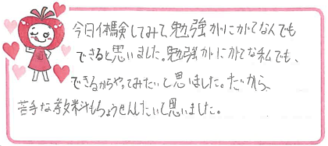 今日体験してみて、勉強かにがてなんでも
できると思いました。勉強かにがてな私でも、
できるからやってみたいと思いました。だから、
苦手な教材もちょうせんしたいと思いました。